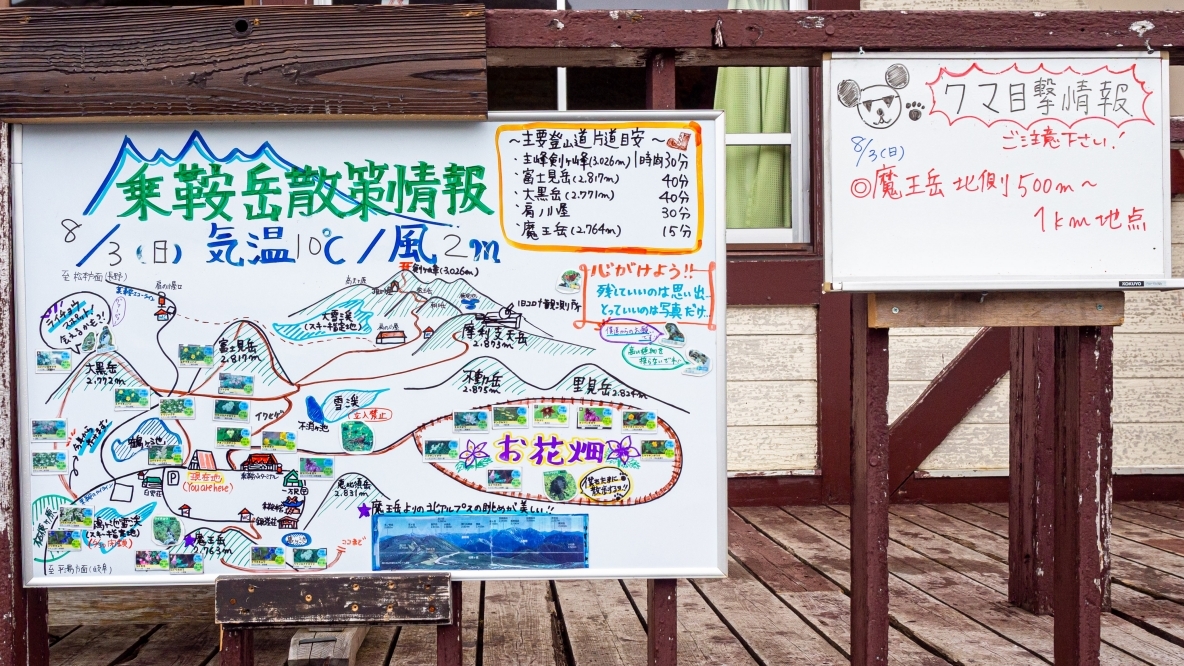 乗鞍岳散策情報
8/3(日) 気温10℃/風2m
~主要登山道 片道目安~
・主峰剣ヶ峰(3.026m) 1時間30分
・富士見岳(2.817m) 40分
・大黒岳(2.771m) 40分
・肩ノ小屋 30分
・魔王岳(2.764m) 15分
心がけよう!!
残していいのは思い出…
とっていいのは写真だけ…
至 松本方面(長野)
剣ヶ峰(3.026m)
旧コロナ観測所
大雪渓
(スキー指定地)
摩利支天岳
2.873m
富士見岳
2.817m
大黒岳
2.772m
不動岳
2.875m
里見岳
2.824m
雪渓
立入禁止
不消ヶ池
鶴ヶ池
お花畑
現在地
(You are here)
恵比須岳
2.831m
魔王岳
2.763m
(スキー指定地)
至 平湯方面(岐阜)
ココまで
★魔王岳よりの北アルプスの眺めが美しい!!
クマ目撃情報
ご注意下さい!
8/3(日)
◎魔王岳 北側 500m~
1km地点
KOKUYO